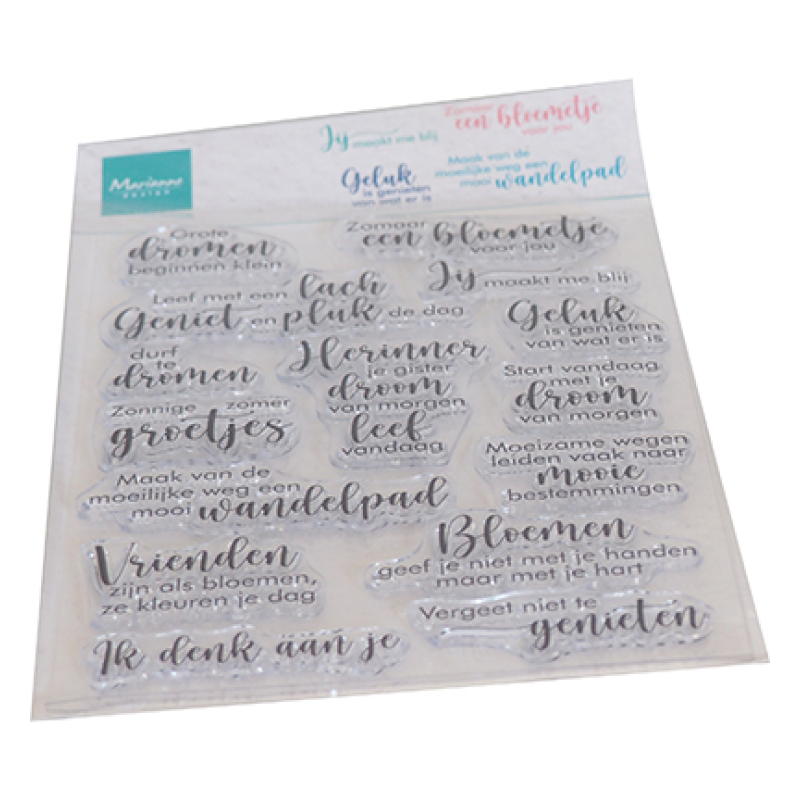 Marianne
DESIGN
Jij maakt me blij
Zomaar
een bloemetje
voor jou
Geluk
is genieten
van wat er is
Maak van de
moeilijke weg een
mooi wandelpad
Grote
dromen
beginnen klein
Zomaar
een bloemetje
voor jou
Leef met een lach
Geniet en pluk de dag
Jij maakt me blij
Geluk
is genieten
van wat er is
durf
te
dromen
Herinner
je gister
droom
van morgen
leef
vandaag
Start vandaag
met je
droom
van morgen
Zonnige zomer
groetjes
Moeizame wegen
leiden vaak naar
mooie
bestemmingen
Maak van de
moeilijke weg een
mooi wandelpad
Vrienden
zijn als bloemen,
ze kleuren je dag
Bloemen
geef je niet met je handen
maar met je hart
Vergeet niet te
genieten
Ik denk áán je